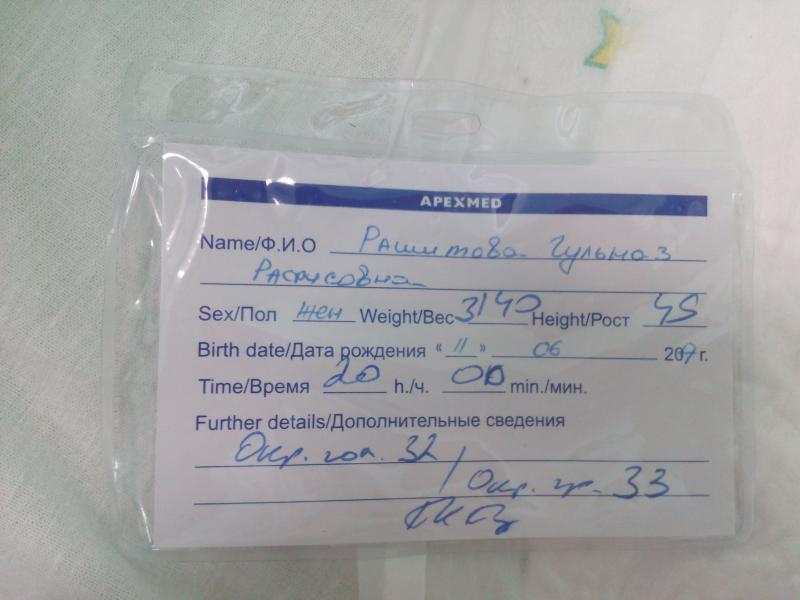 APEXMED
Name/Ф.И.О Рашитова Гульназ
Sex/Пол жен Weight/Вес 3140 Height/Рост 45
Birth date/Дата рождения « 11 » 06 г.
Time/Время 20 h./ч. 00 min./мин.
Further details/Дополнительные сведения
Окр. гол. 32
/ Окр. гр. 33